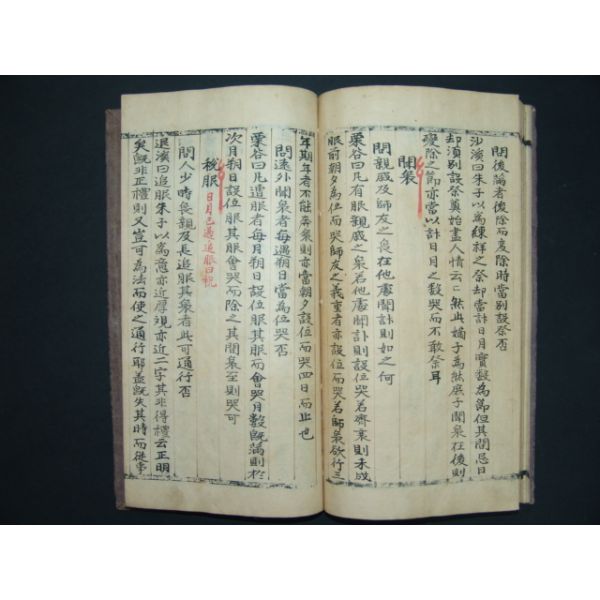 問後論者後除而度除時當別設祭否
沙溪曰朱子以爲練祥之祭却當計日月實數爲節但其間忌日
却須別設祭奠始盡人情云云然此嫡子爲然庶子聞喪在後則
變除之節亦當以計日月之數哭而不敢祭耳
聞喪
問親戚及師友之喪在他處聞訃則如之何
栗谷曰凡有服親戚之喪若他處聞訃則設位哭若齊衰則未成
服前朝夕爲位而哭師友之義重者亦設位而哭若師喪欲行三
年期年者不能奔喪則亦當朝夕設位而哭四日而止也
問遠外聞喪者每遇朔日當爲位哭否
栗谷曰凡遣服者每月朔日設位服其服而會哭月數旣滿則於
次月朔日設位服其服會哭而除之其聞喪至則哭可
稅服 日月已過追服曰稅
問人少時喪親及長追服其喪者此可通行否
退溪曰追服朱子以爲意亦近厚觀亦近二字其非得禮云正明
矣旣非正禮則又豈可爲法而使之通行耶盖旣失其時而從事